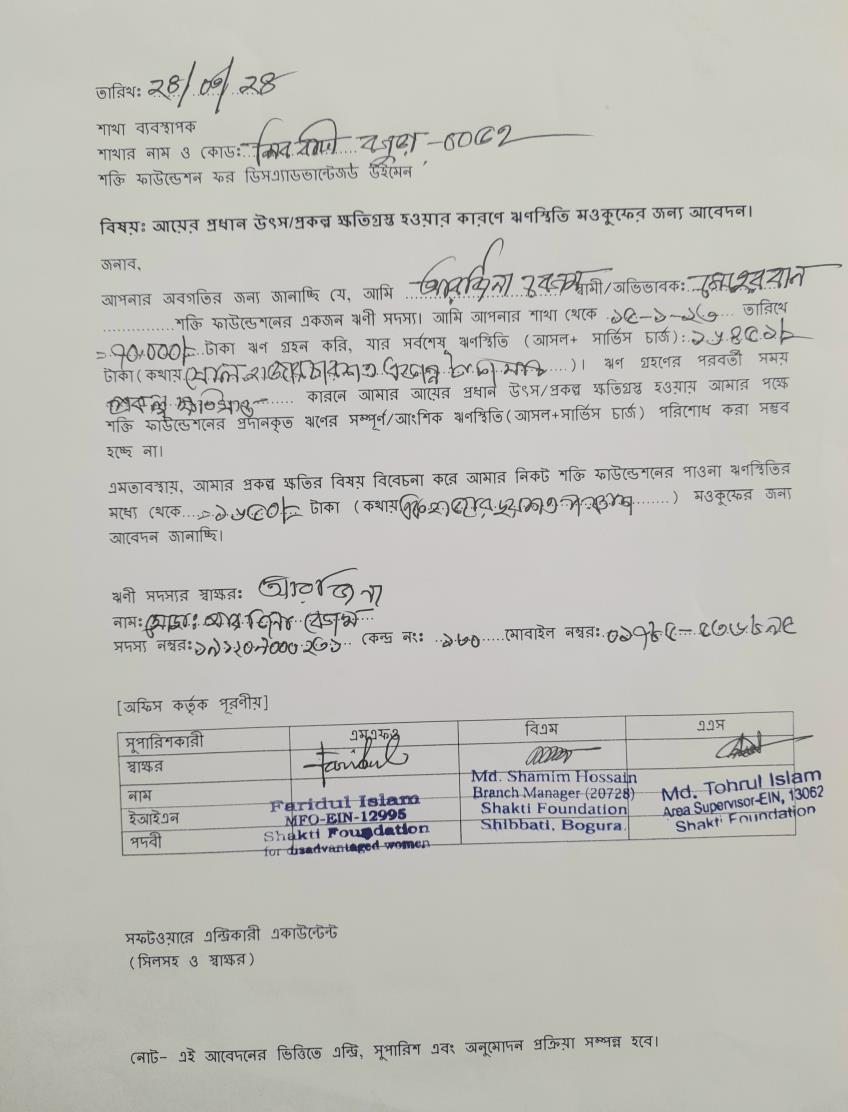 তারিখঃ ২৪/০৭/২৪
শাখা ব্যবস্থাপক
শাখার নাম ও কোডঃ শিববাটী বগুড়া -
শক্তি ফাউন্ডেশন ফর ডিসএ্যাডভান্টেজড উইমেন
বিষয়ঃ আয়ের প্রধান উৎস/প্রকল্প ক্ষতিগ্রস্ত হওয়ার কারণে ঋণস্থিতি মওকুফের জন্য আবেদন।
জনাব,
আপনার অবগতির জন্য জানাচ্ছি যে, আমি আরজিনা বেগম স্বামী/অভিভাবক: মেহেরবান
শক্তি ফাউন্ডেশনের একজন ঋণী সদস্য। আমি আপনার শাখা থেকে তারিখে
= ৭০,০০০/= টাকা ঋণ গ্রহন করি, যার সর্বশেষ ঋণস্থিতি (আসল+ সার্ভিস চার্জ):
টাকা (কথায় ষোল হাজার চারশত মাত্র)। ঋণ গ্রহণের পরবর্তী সময়
প্রকল্প ক্ষতিগ্রস্ত কারনে আমার আয়ের প্রধান উৎস/প্রকল্প ক্ষতিগ্রস্ত হওয়ায় আমার পক্ষে
শক্তি ফাউন্ডেশনের প্রদানকৃত ঋণের সম্পূর্ণ/আংশিক ঋণস্থিতি (আসল+সার্ভিস চার্জ) পরিশোধ করা সম্ভব
হচ্ছে না।
এমতাবস্থায়, আমার প্রকল্প ক্ষতির বিষয় বিবেচনা করে আমার নিকট শক্তি ফাউন্ডেশনের পাওনা ঋণস্থিতির
মধ্যে থেকে টাকা (কথায় ) মওকুফের জন্য
আবেদন জানাচ্ছি।
ঋণী সদস্যর স্বাক্ষরঃ আরজিনা
নাম: মোছাঃ আরজিনা বেগম
সদস্য নম্বর: কেন্দ্র নং: ১৮০ মোবাইল নম্বর:
[অফিস কর্তৃক পূরণীয়]
সুপারিশকারী এমএফও বিএম এএস
স্বাক্ষর Faridul
নাম Faridul Islam Md. Shamim Hossain Md. Tohrul Islam
ইআইএন MFO-EIN-12995 Branch Manager (20728) Area Supervisor-EIN, 13062
পদবী Shakti Foundation Shakti Foundation Shakti Foundation
for disadvantaged women Shibbati, Bogura.
সফটওয়ারে এন্ট্রিকারী একাউন্টেন্ট
(সিলসহ ও স্বাক্ষর)
নোট- এই আবেদনের ভিত্তিতে এন্ট্রি, সুপারিশ এবং অনুমোদন প্রক্রিয়া সম্পন্ন হবে।